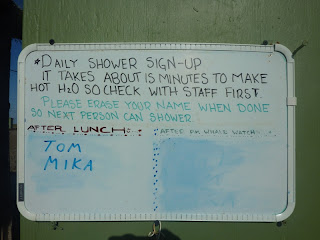 *DAILY SHOWER SIGN-UP
IT TAKES ABOUT 15 MINUTES TO MAKE
HOT H2O SO CHECK WITH STAFF FIRST.
PLEASE ERASE YOUR NAME WHEN DONE
SO NEXT PERSON CAN SHOWER
AFTER LUNCH:
AFTER PM WHALE WATCH:
TOM
MIKA